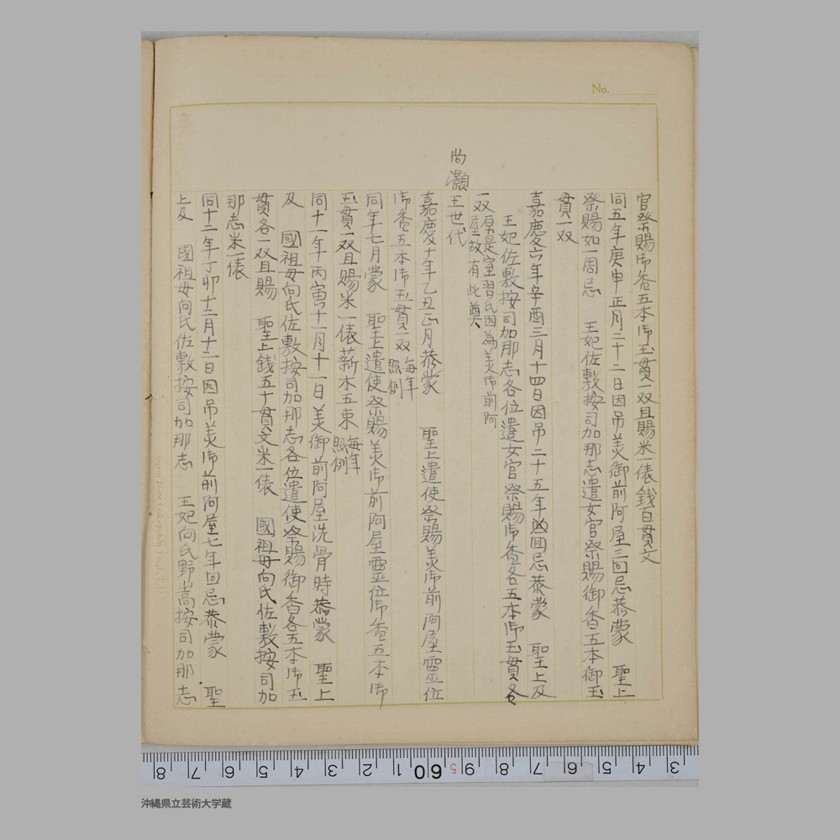 No.
官祭賜御香五本御玉貫一双且賜米一俵錢百貫文
同五年庚申正月二十二日因吊美御前阿屋三回忌恭蒙 聖上
祭賜如一周忌 王妃佐敷按司加那志遣女官祭賜御香五本御玉
貫一双
嘉慶六年辛酉三月十四日因吊二十五年回忌恭蒙 聖上及
王妃佐敷按司加那志各位遣女官祭賜御香各五本御玉貫各
一双原是室習氏因為美御前阿
屋故有此奠
尚灝王世代
嘉慶十年乙丑正月恭蒙 聖上遣使祭賜美御前阿屋霊位
御香五本御玉貫一双 毎年
照例
同年七月蒙 聖主遣使祭賜美御前阿屋霊位御香五本御
玉貫一双且賜米一俵薪木五束 毎年
照例
同十一年丙寅十一月十一日美御前阿屋洗骨時恭蒙 聖上
及 國祖母向氏佐敷按司加那志各位遣使祭賜御香各五本御玉
貫各一双且賜 聖上錢五十貫文米一俵 國祖母向氏佐敷按司加
那志米一俵
同十二年丁卯十二月十二日因吊美御前阿屋七年回忌恭蒙 聖
上及 國祖母向氏佐敷按司加那志 王妃向氏野嵩按司加那志
8 7 6 5 4 3 2 1 60 9 8 7 6 5 4 3
沖縄県立芸術大学蔵